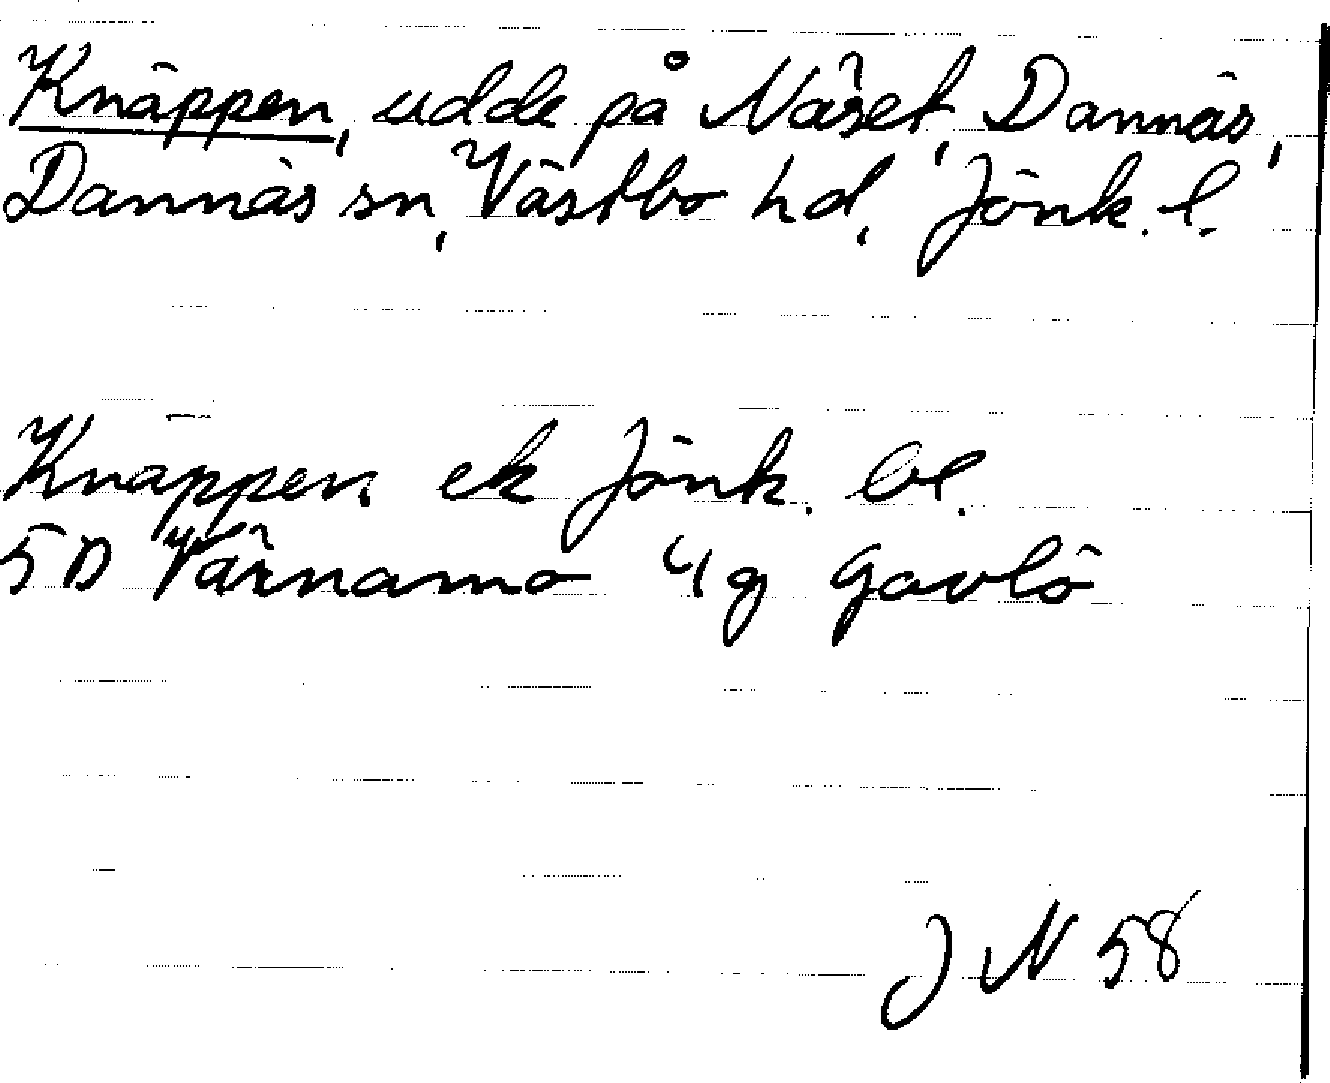 Knäppen, udde på Näset, Dannäs,
Dannäs sn, Västbo hd, Jönk. l.
Knäppen ek Jönk. bl.
5D Värnamo 4g Gavlö
JN 58